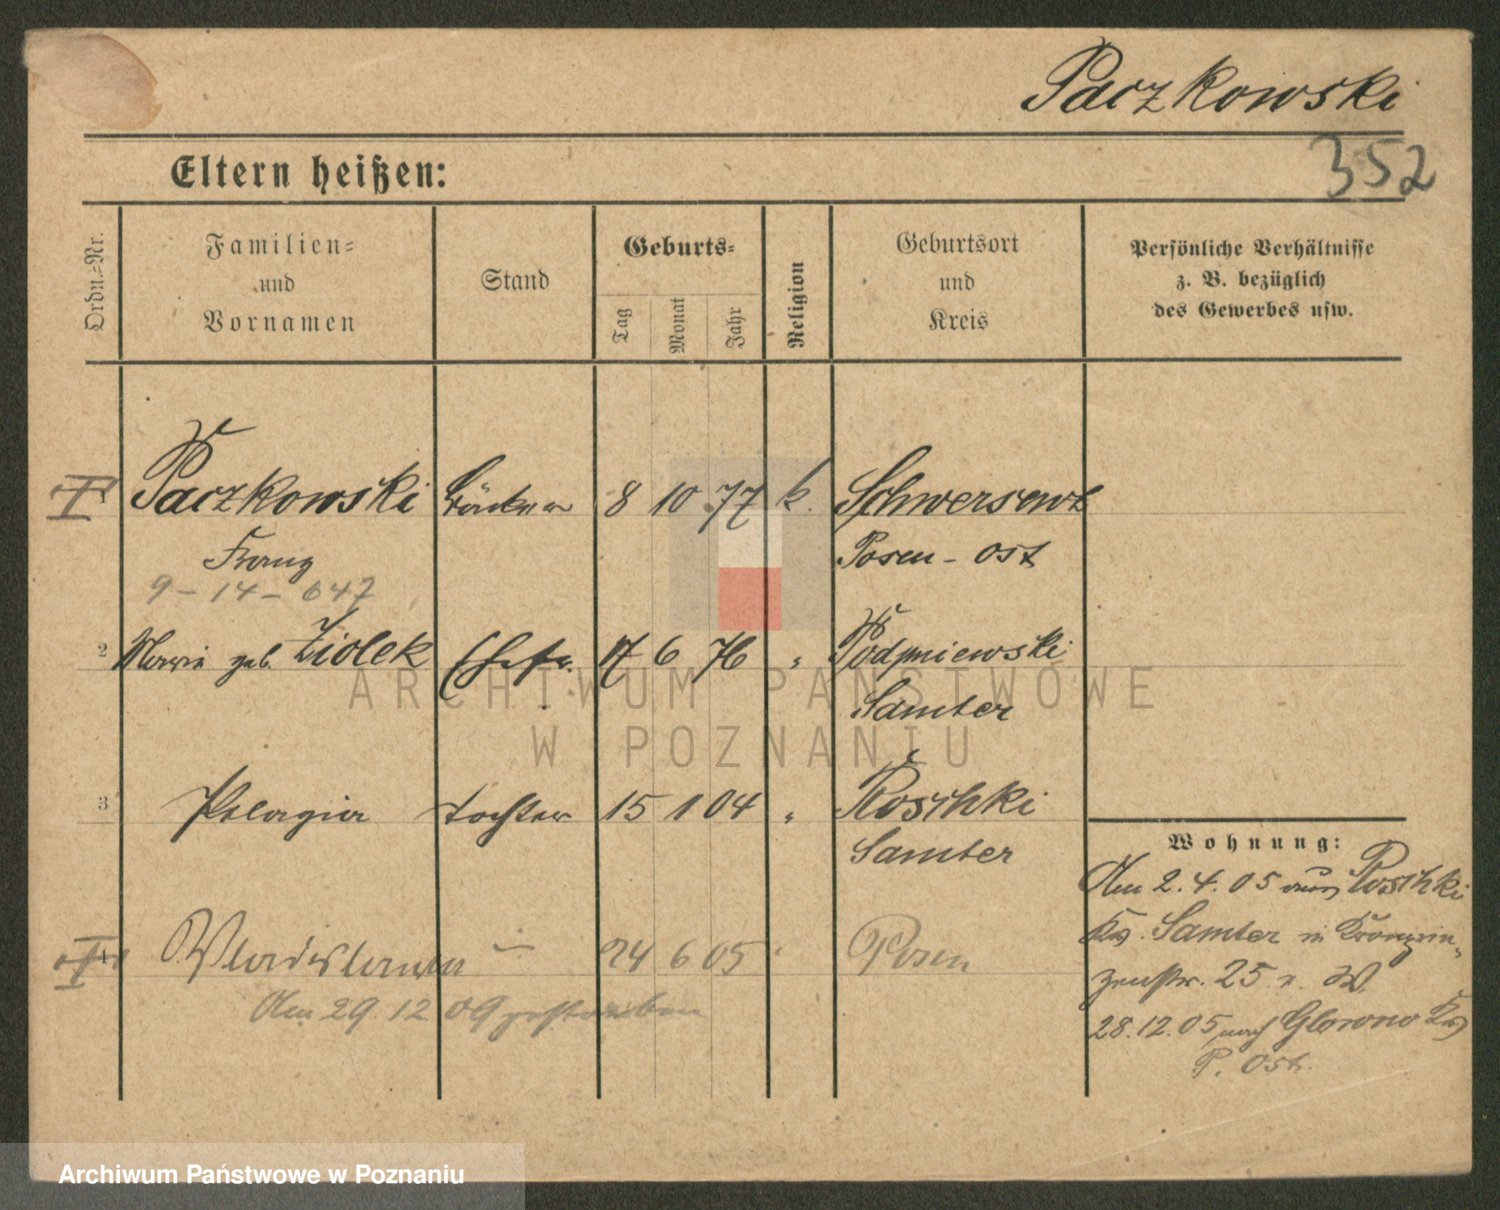 Paczkowski
352
Eltern heißen:
Ordn.-Nr.
Familien-
und
Vornamen
Stand
Geburts-
Tag
Monat
Jahr
Religion
Geburtsort
und
Kreis
Persönliche Verhältnisse
z. B. bezüglich
des Gewerbes usw.
Paczkowski
8 10 77 k. Schwersenz
Franz
Posen - Ost
9 - 14 - 647
2 Maria geb. Ziolek Ehefr. 17 6 76 " Podpniewski
Samter
3 Pelagia Tochter 15 1 04 " Roschki
Samter
4 Wladislawa " 24 6 05 " Posen
Am 29.12 09 gestorben
Wohnung:
Am 2.4.05 aus Roschki
Kr. Samter in Kronprin-
zenstr. 25 v. W.
28.12.05 nach Glowno Kr.
P. Ost.
ARCHIWUM PAŃSTWOWE
W POZNANIU
Archiwum Państwowe w Poznaniu